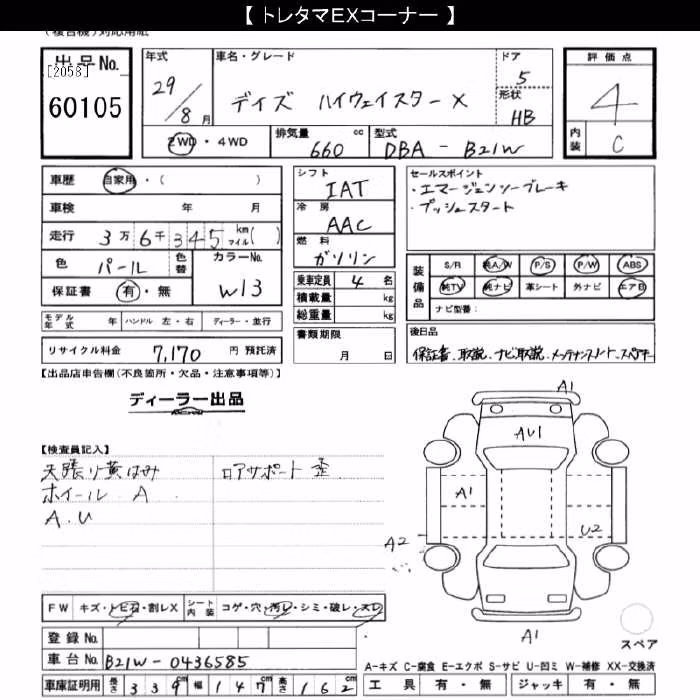 【 トレタマEXコーナー 】
(複合機)対応用紙
出品No.
[2058]
60105
年式
29/8月
車名・グレード
デイズ ハイウェイスターX
ドア
5
形状
HB
評価点
4
内装
C
2WD・4WD
排気量 660 cc
型式 DBA-B21W
車歴 自家用・( )
車検 年 月
走行 3万6千345 km マイル( )
色 パール 色替
カラーNo. W13
保証書 有・無
モデル年式 年 ハンドル 左・右 ディーラー・並行
リサイクル料金 7,170 円 預託済
シフト
IAT
冷房
AAC
燃料
ガソリン
乗車定員 4 名
積載量 kg
総重量 kg
書類期限
月 日
セールスポイント
・エマージェンシーブレーキ
・プッシュスタート
装備品
S/R 純A/W P/S P/W ABS
純TV 純ナビ 革シート 外ナビ エアB
ナビ型番:
後日品
保証書、取説、ナビ取説、メンテナンスノート、スペアキー
【出品店申告欄(不良箇所・欠品・注意事項等)】
ディーラー出品
【検査員記入】
天張り黄ばみ
ホイール A
A.U
ロアサポート 歪
A1
AU1
A1
A2
U2
A1
スペア
FW キズ・トビ石・割レX シート内装 コゲ・穴・汚レ・シミ・破レ・スレ
登録No.
車台No. B21W-0436585
車庫証明用 長さ 339cm 幅 147cm 高さ 162cm
A-キズ C-腐食 E-エクボ S-サビ U-凹ミ W-補修 XX-交換済
工具 有・無 ジャッキ 有・無